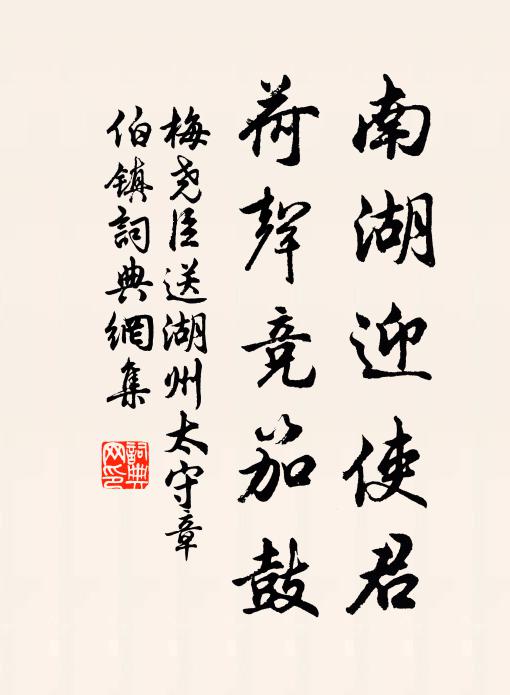 南湖迎使君
荷聲竞笳鼓
梅尧臣送湖州太守章
伯鎮詞典網集
詞典
网印